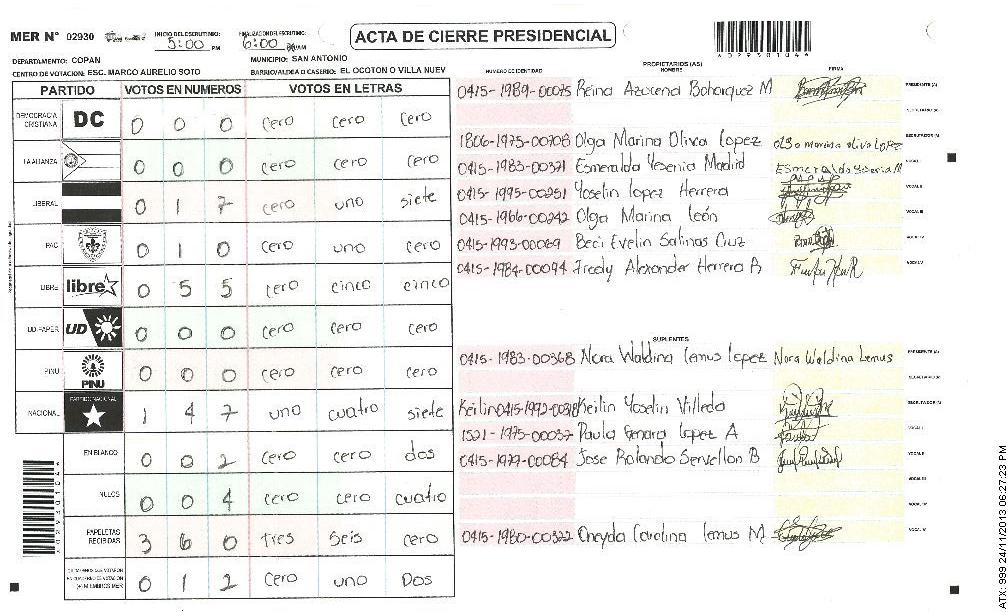 MER N° 02930
INICIO DEL ESCRUTINIO: 5:00 PM
FINALIZACION DEL ESCRUTINIO: 6:00 AM
ACTA DE CIERRE PRESIDENCIAL
DEPARTAMENTO: COPAN
MUNICIPIO: SAN ANTONIO
CENTRO DE VOTACION: ESC. MARCO AURELIO SOTO
BARRIO/ALDEA O CASERIO: EL OCOTON O VILLA NUEV
PARTIDO VOTOS EN NUMEROS VOTOS EN LETRAS
DEMOCRACIA CRISTIANA DC 0 0 0 cero cero cero
LA ALIANZA 0 0 0 cero cero cero
LIBERAL 0 1 7 cero uno siete
PAC 0 1 0 cero uno cero
LIBRE libre 0 5 5 cero cinco cinco
UD-FAPER UD 0 0 0 cero cero cero
PINU PINU 0 0 0 cero cero cero
NACIONAL PARTIDO NACIONAL 1 4 7 uno cuatro siete
EN BLANCO 0 0 2 cero cero dos
NULOS 0 0 4 cero cero cuatro
PAPELETAS RECIBIDAS 3 6 0 tres seis cero
CIUDADANOS QUE VOTARON EN CUADERNO DE VOTACION (+) MIEMBROS MER 0 1 2 cero uno Dos
PROPIETARIOS (AS)
NUMERO DE IDENTIDAD NOMBRE FIRMA
0415-1989-00075 Reina Azucena Bohorquez M PRESIDENTE (A)
SECRETARIO (A)
1806-1975-00708 Olga Marina Oliva Lopez olga marina oliva LOPEZ ESCRUTADOR (A)
0415-1983-00371 Esmeralda Yesenia Madrid Esmeralda Yesenia M VOCAL I
0415-1995-00251 Yoselin Lopez Herrera VOCAL II
0415-1966-00242 Olga Marina León VOCAL III
0415-1993-00069 Beci Evelin Salinas Cruz VOCAL IV
0415-1984-00094 Fredy Alexander Herrera R VOCAL V
SUPLENTES
0415-1983-00368 Nora Waldina Lemus Lopez Nora Waldina Lemus PRESIDENTE (A)
SECRETARIO (A)
Keilin 0415-1992-00318 Keilin Yoselin Villeda ESCRUTADOR (A)
1521-1975-00037 Paula Genara Lopez A VOCAL I
0415-1979-00084 Jose Rolando Servellon B VOCAL II
VOCAL III
VOCAL IV
0415-1980-00322 Oneyda Carolina Lemus M VOCAL V
ATX: 999 24/11/2013 06:27:23 PM